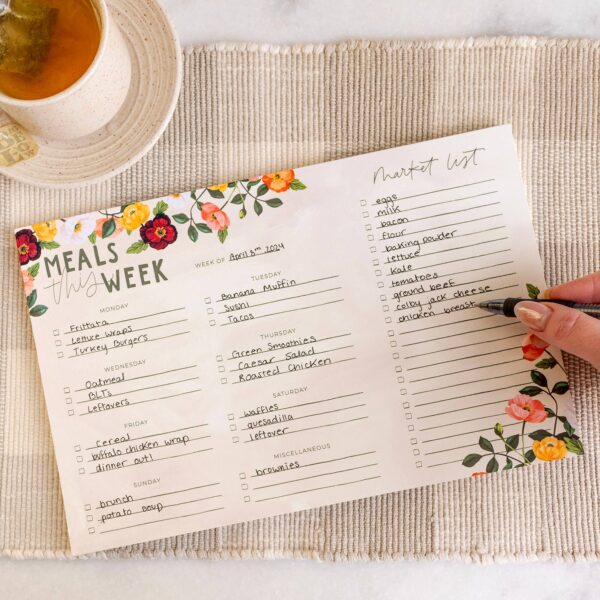 MEALS
this WEEK
WEEK OF April 5th 2024
MONDAY
Frittata
Lettuce Wraps
Turkey Burgers
TUESDAY
Banana Muffin
Sushi
Tacos
WEDNESDAY
Oatmeal
BLTs
Leftovers
THURSDAY
Green Smoothies
Caesar Salad
Roasted Chicken
FRIDAY
Cereal
buffalo chicken wrap
dinner out!
SATURDAY
waffles
quesadilla
leftover
SUNDAY
brunch
potato soup
MISCELLANEOUS
brownies
Market list
eggs
milk
bacon
flour
baking powder
lettuce
kale
tomatoes
ground beef
colby jack cheese
chicken breast